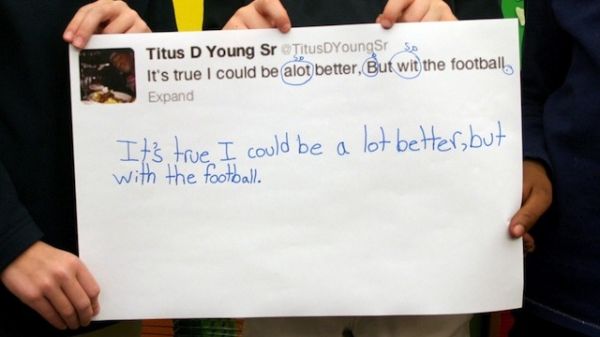 Titus D Young Sr @TitusDYoungSr
sp b sp
It's true I could be alot better, But wit the football.
Expand
It's true I could be a lot better, but
with the football.